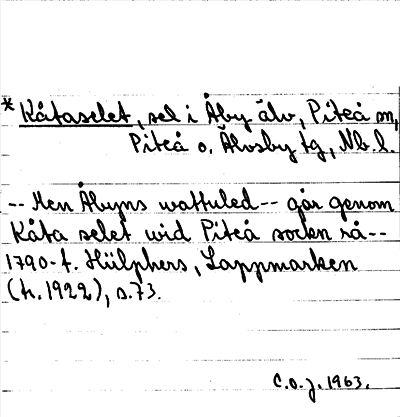 * Kåtaselet, sel i Åby älv, Piteå sn,
Piteå o. Älvsby tg, Nb. l.
-- Men Åbyns wattuled -- går genom
Kåta selet wid Piteå socken rå --
1790-t. Hülphers, Lappmarken
(tr. 1922), s. 73.
C.O.J. 1963.